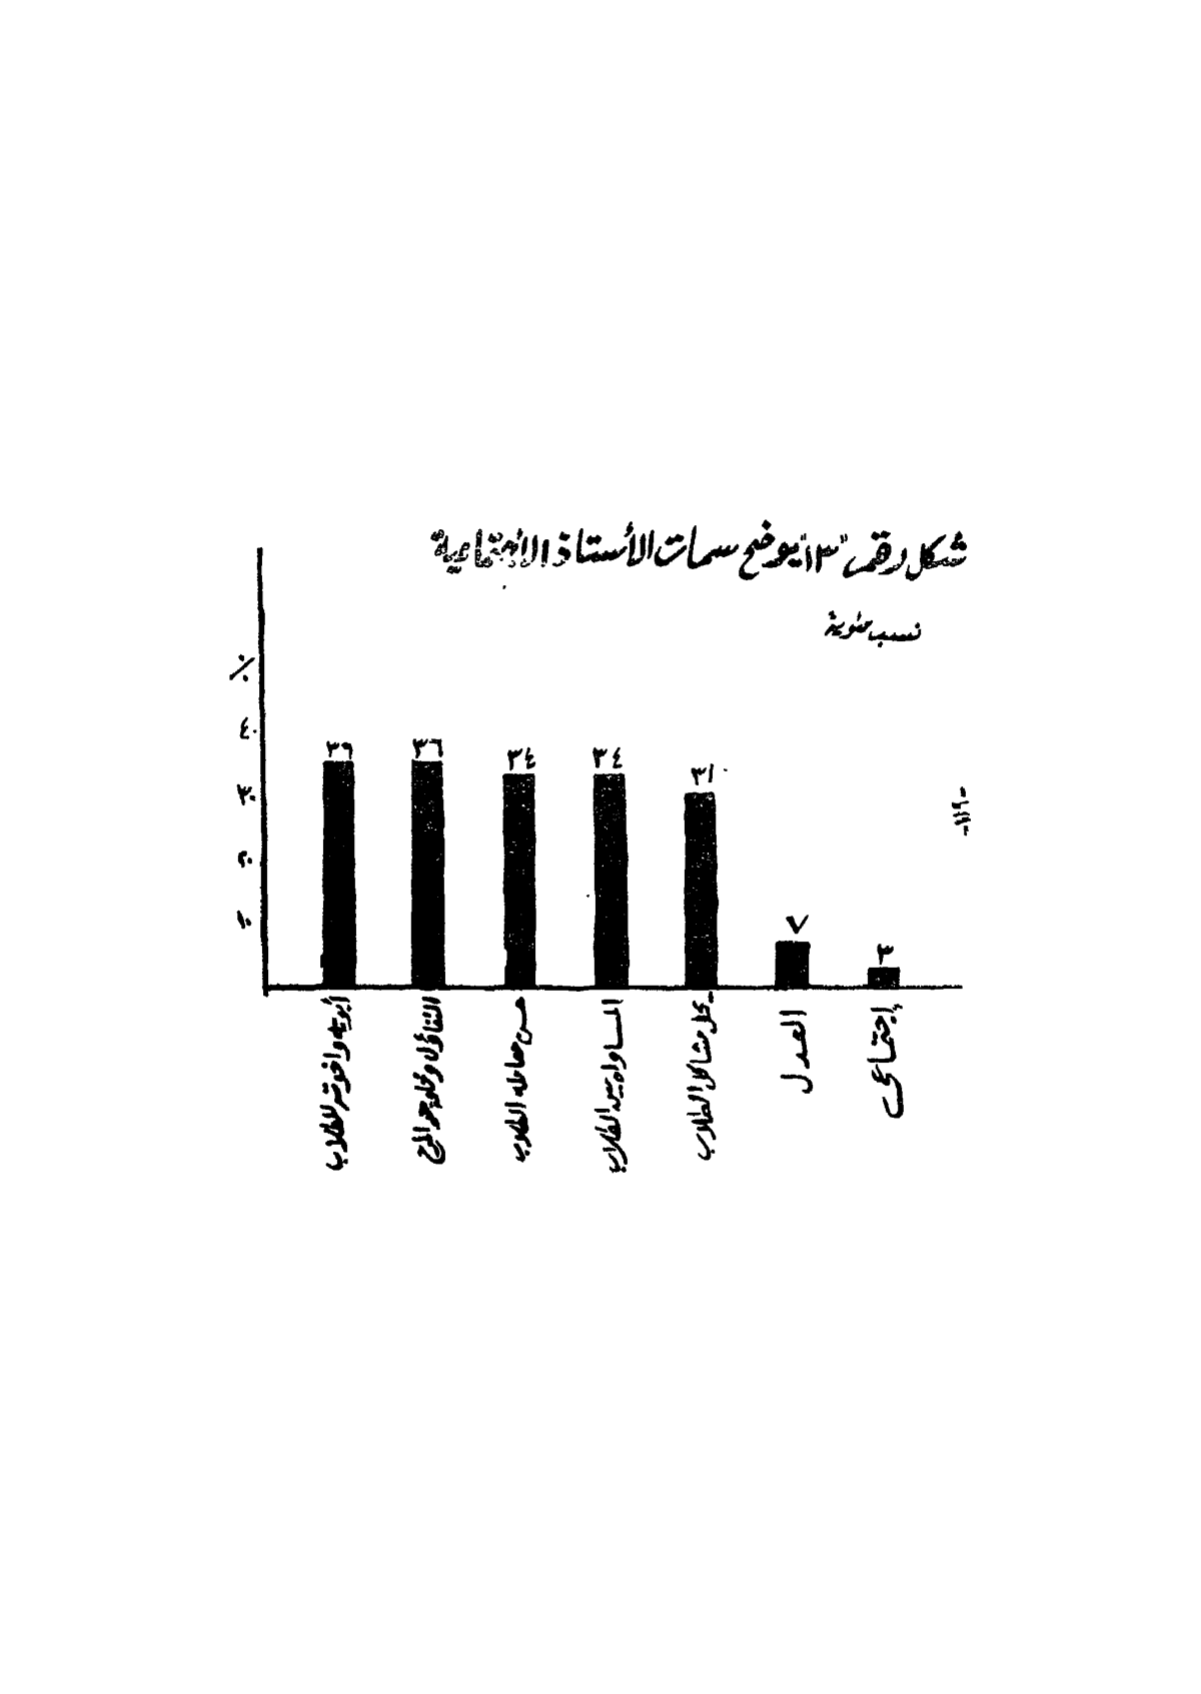 شكل رقم "١٣" يوضح سمات الأستاذ الإجتماعية
نسب مئوية
٪
٤٠
٣٠
٢٠
١٠
٣٩
٣٦
٣٤
٣٤
٣١
٧
٣
أبويته واخوته للطلاب
التفاؤل وخلق جو المرح
حسن معامله الطلاب
المساواه بين الطلاب
يحل مشاكل الطلاب
العدل
إجتماعى
-١١٩-